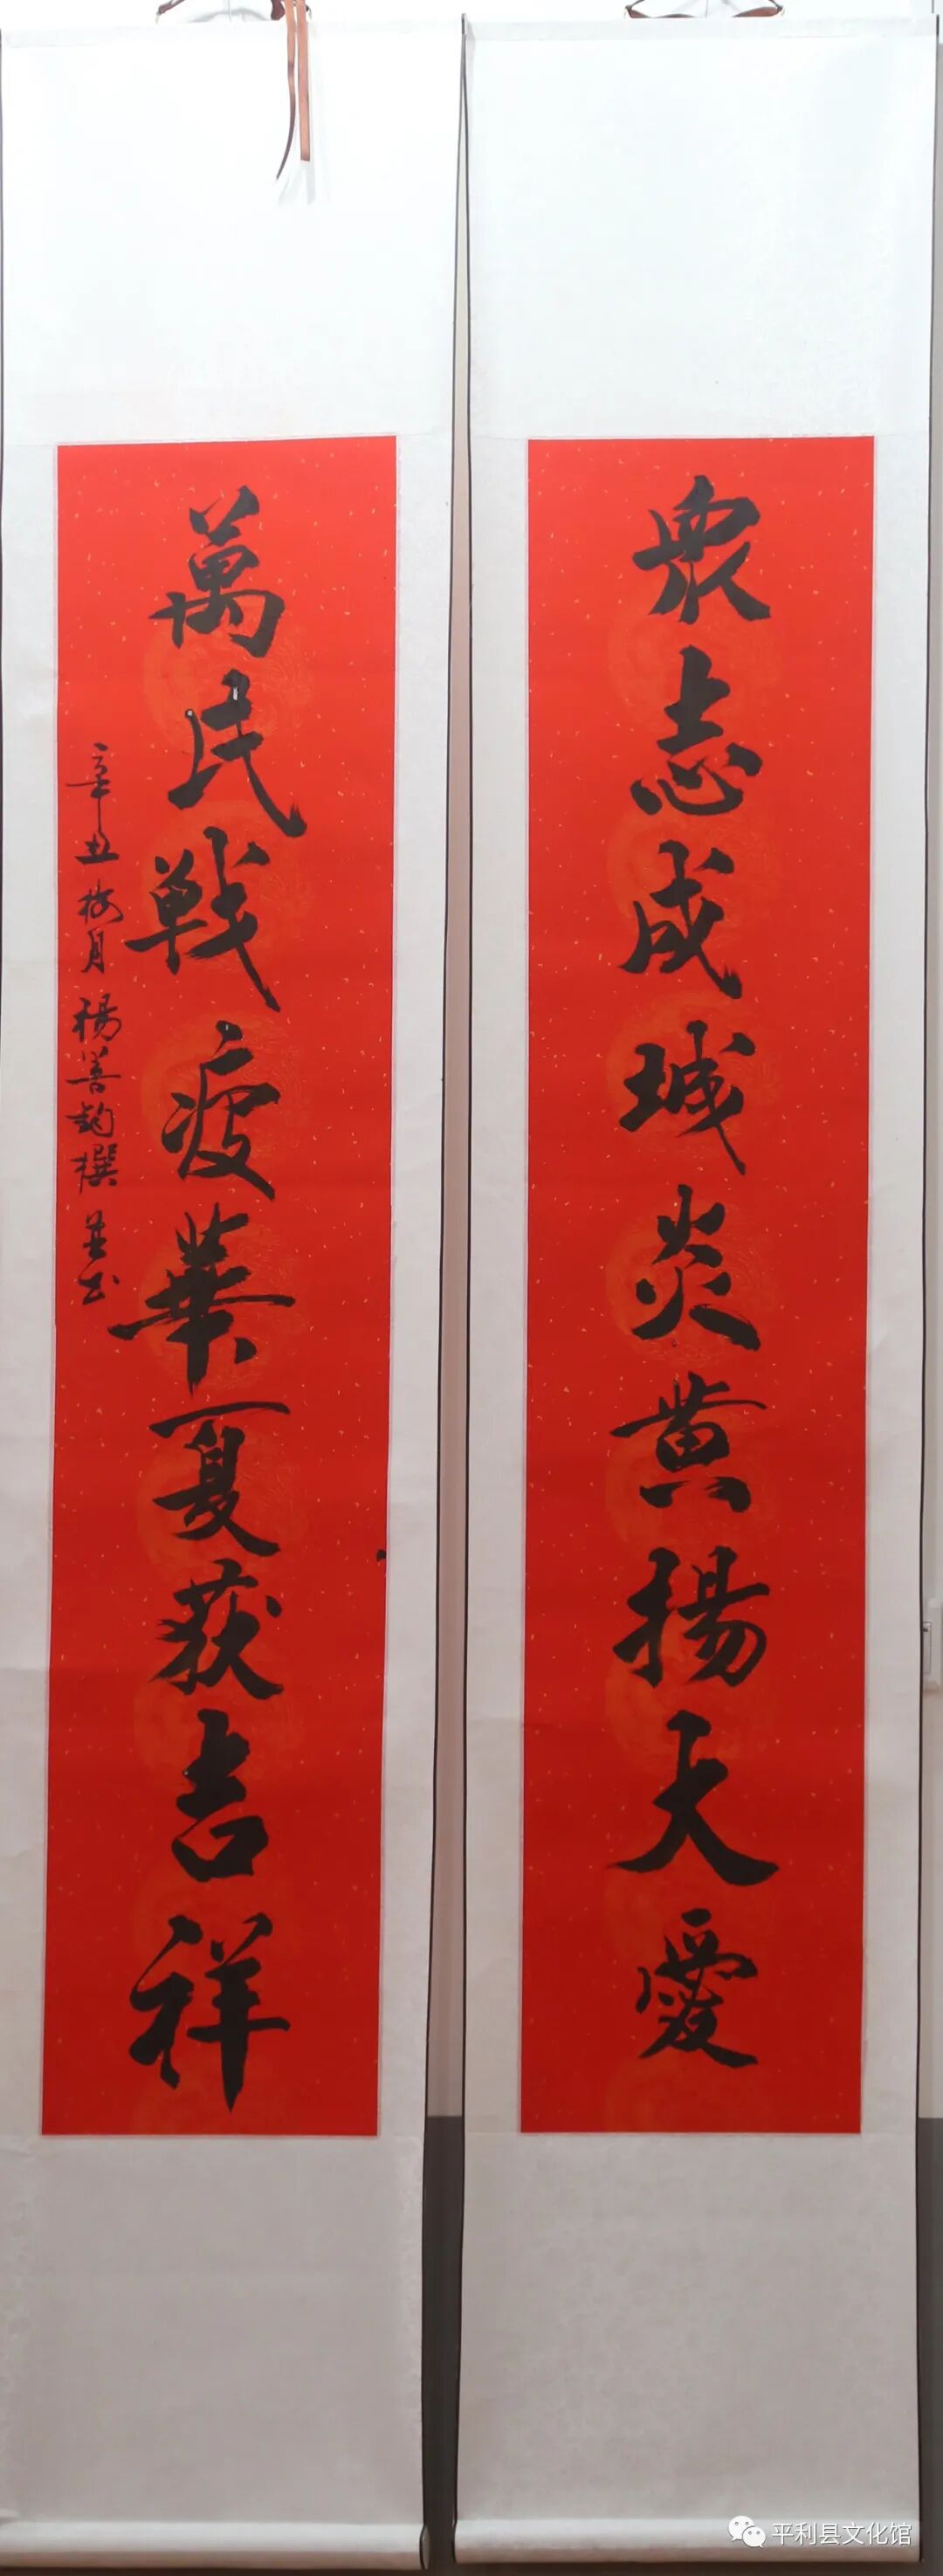 衆志成城炎黄揚大愛
萬民戰疫華夏获吉祥
辛丑梅月楊善韵撰並书
平利县文化馆